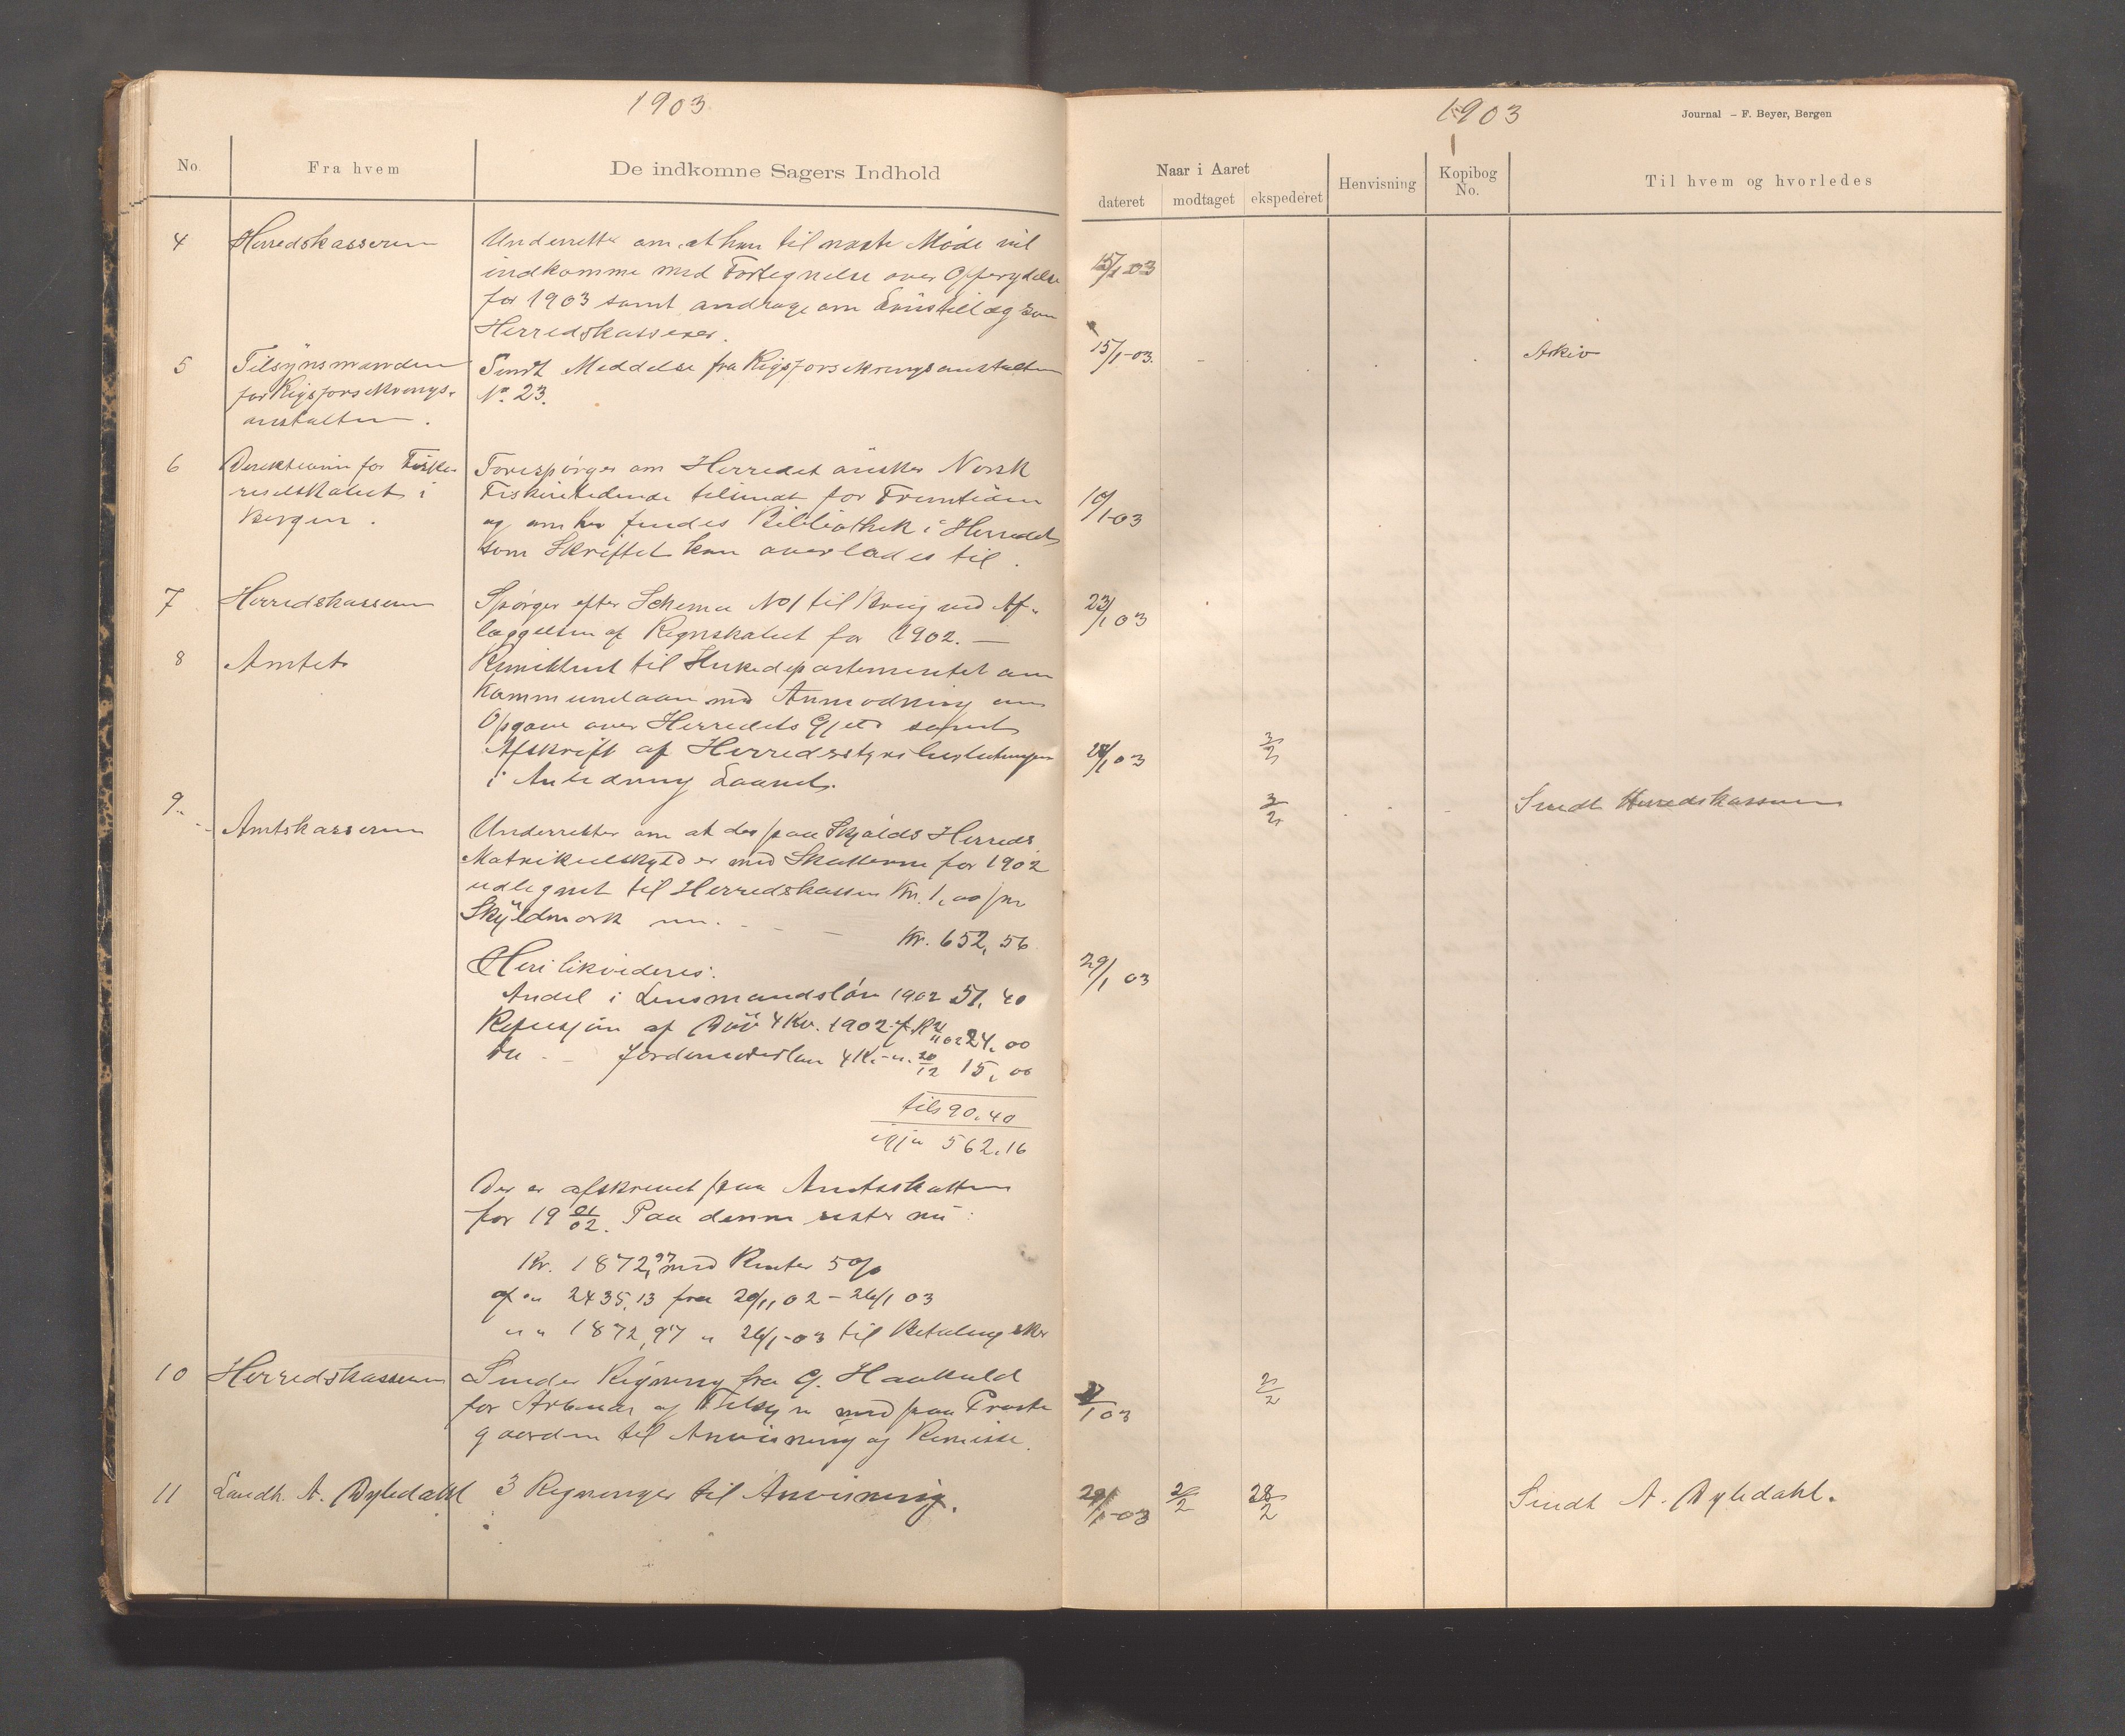 1903
No.
Fra hvem
De indkomne Sagers Indhold
4
Herredskasseren
Underretter om at han til næste Møde vil
indkomme med Fortegnelse over
for 1903 samt andrage om Lønstillæg som
Herredskasserer.
5
Tilsynsmanden
for Rigsforsikrings-
anstalten.
Sendt Meddelse fra Rigsforsikringsanstalten
No. 23.
6
Direktionen for Fiske-
riselskabet i
Bergen.
Forespørger om Herredet ønsker Norsk
Fiskeritidende tilsendt for Fremtiden
og om her findes Bibliothek i Herredet
som Skriftet kan overlades til.
7
Herredskasseren
Spørger efter Schema No 1 til Brug ved Af-
læggelsen af Regnskabet for 1902. —
8
Amtet
Remitteret til Kirkedepartementet om
Kommunelaan med Anmodning om
Opgave over Herredets Gjeld samt
Afskrift af Herredsstyrebeslutningen
i Anledning Laanet.
9.
Amtskasseren
Underretter om at der paa Skjolds Herreds
Matrikulskyld er med Skatterne for 1902
udlignet til Herredskassen Kr. 1,00 pr
Skyldmark
Kr. 652,56
Heri likvideres:
Andel i Lensmandsløn 1902 51,40
Refusjon af 4 Kv. 1902 24,00
Jordemoderløn 4 K. 20/12 15,00
tils 90.40
igjen 562.16
Der er afskrevet paa Amtsskatten
for 19 01/02. Paa denne rester nu:
Kr. 1872,97 med Renter 5 %
af 2435,13 fra 20/11 02 – 26/1 03
" " 1872,97 " 26/1-03 til Betaling sker
10
Herredskasseren
Sender Regning fra G. Haakuld
for Arbeide og Tilsyn med paa Præste
gaarden til Anvisning og Remisse.
11
Landh. A. Dybdahl
3 Regninger til Anvisning.
1903
Journal – F. Beyer, Bergen
Naar i Aaret
dateret
modtaget
ekspederet
Henvisning
Kopibog
No.
Til hvem og hvorledes
15/1 03
15/1-03.
Arkiv
10/1-03
23/1 03
28/1 03
3/2
3/2
Sendt Herredskasseren
29/1 03
1 03
2/2
29/1-03
2/2
28/2
Sendt A. Dybdahl.